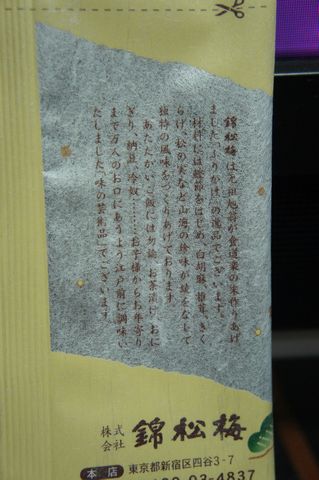 錦松梅は元祖旭翁が食道楽の末作りあげ
ました「ふりかけ」の逸品でございます。
材料には鰹節をはじめ、白胡麻、椎茸、きく
らげ、松の実など山海の珍味が妙をなして
独特の風味をつくりあげております。
あたたかいご飯には勿論、お茶漬け、おに
ぎり、納豆、冷奴………お子様からお年寄り
まで万人のお口にあうよう江戸前に調味い
たしました「味の芸術品」でございます。
株式会社 錦松梅
本店 東京都新宿区四谷3-7
03-4837